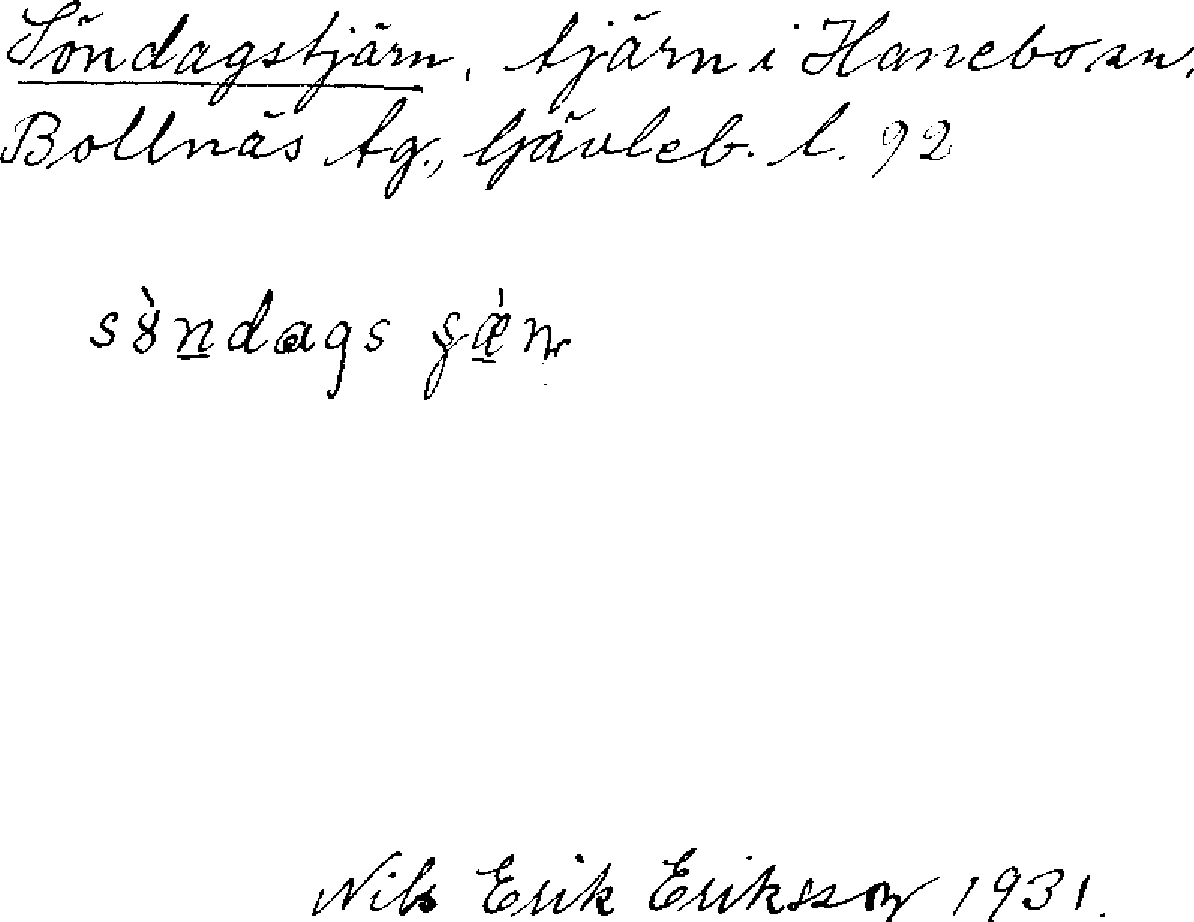 Söndagstjärn, tjärn i Hanebo sn,
Bollnäs tg., Gävleb. l. 92
Nils Erik Eriksson 1931.